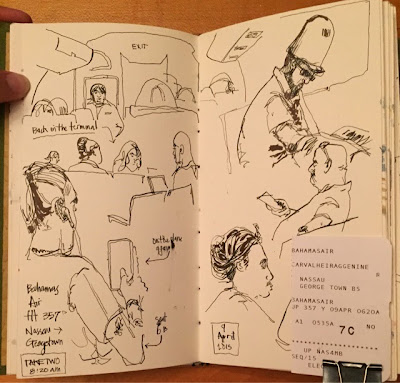 EXIT
Back in the terminal
On the plane
again
Bahamas
Air
flt 357
Nassau →
Georgetown
seat
TAKE TWO
8:20 AM
9
April
2015
BAHAMASAIR
CARVALHEIRAGGENINE
NASSAU
GEORGE TOWN BS
BAHAMASAIR
UP 357 Y 09APR 0620A
A1 0515A 7C NO
UP NAS4MB
SEQ/15
ELEC